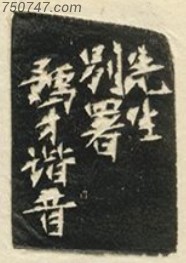 750747.com
先生
别署
才谐音